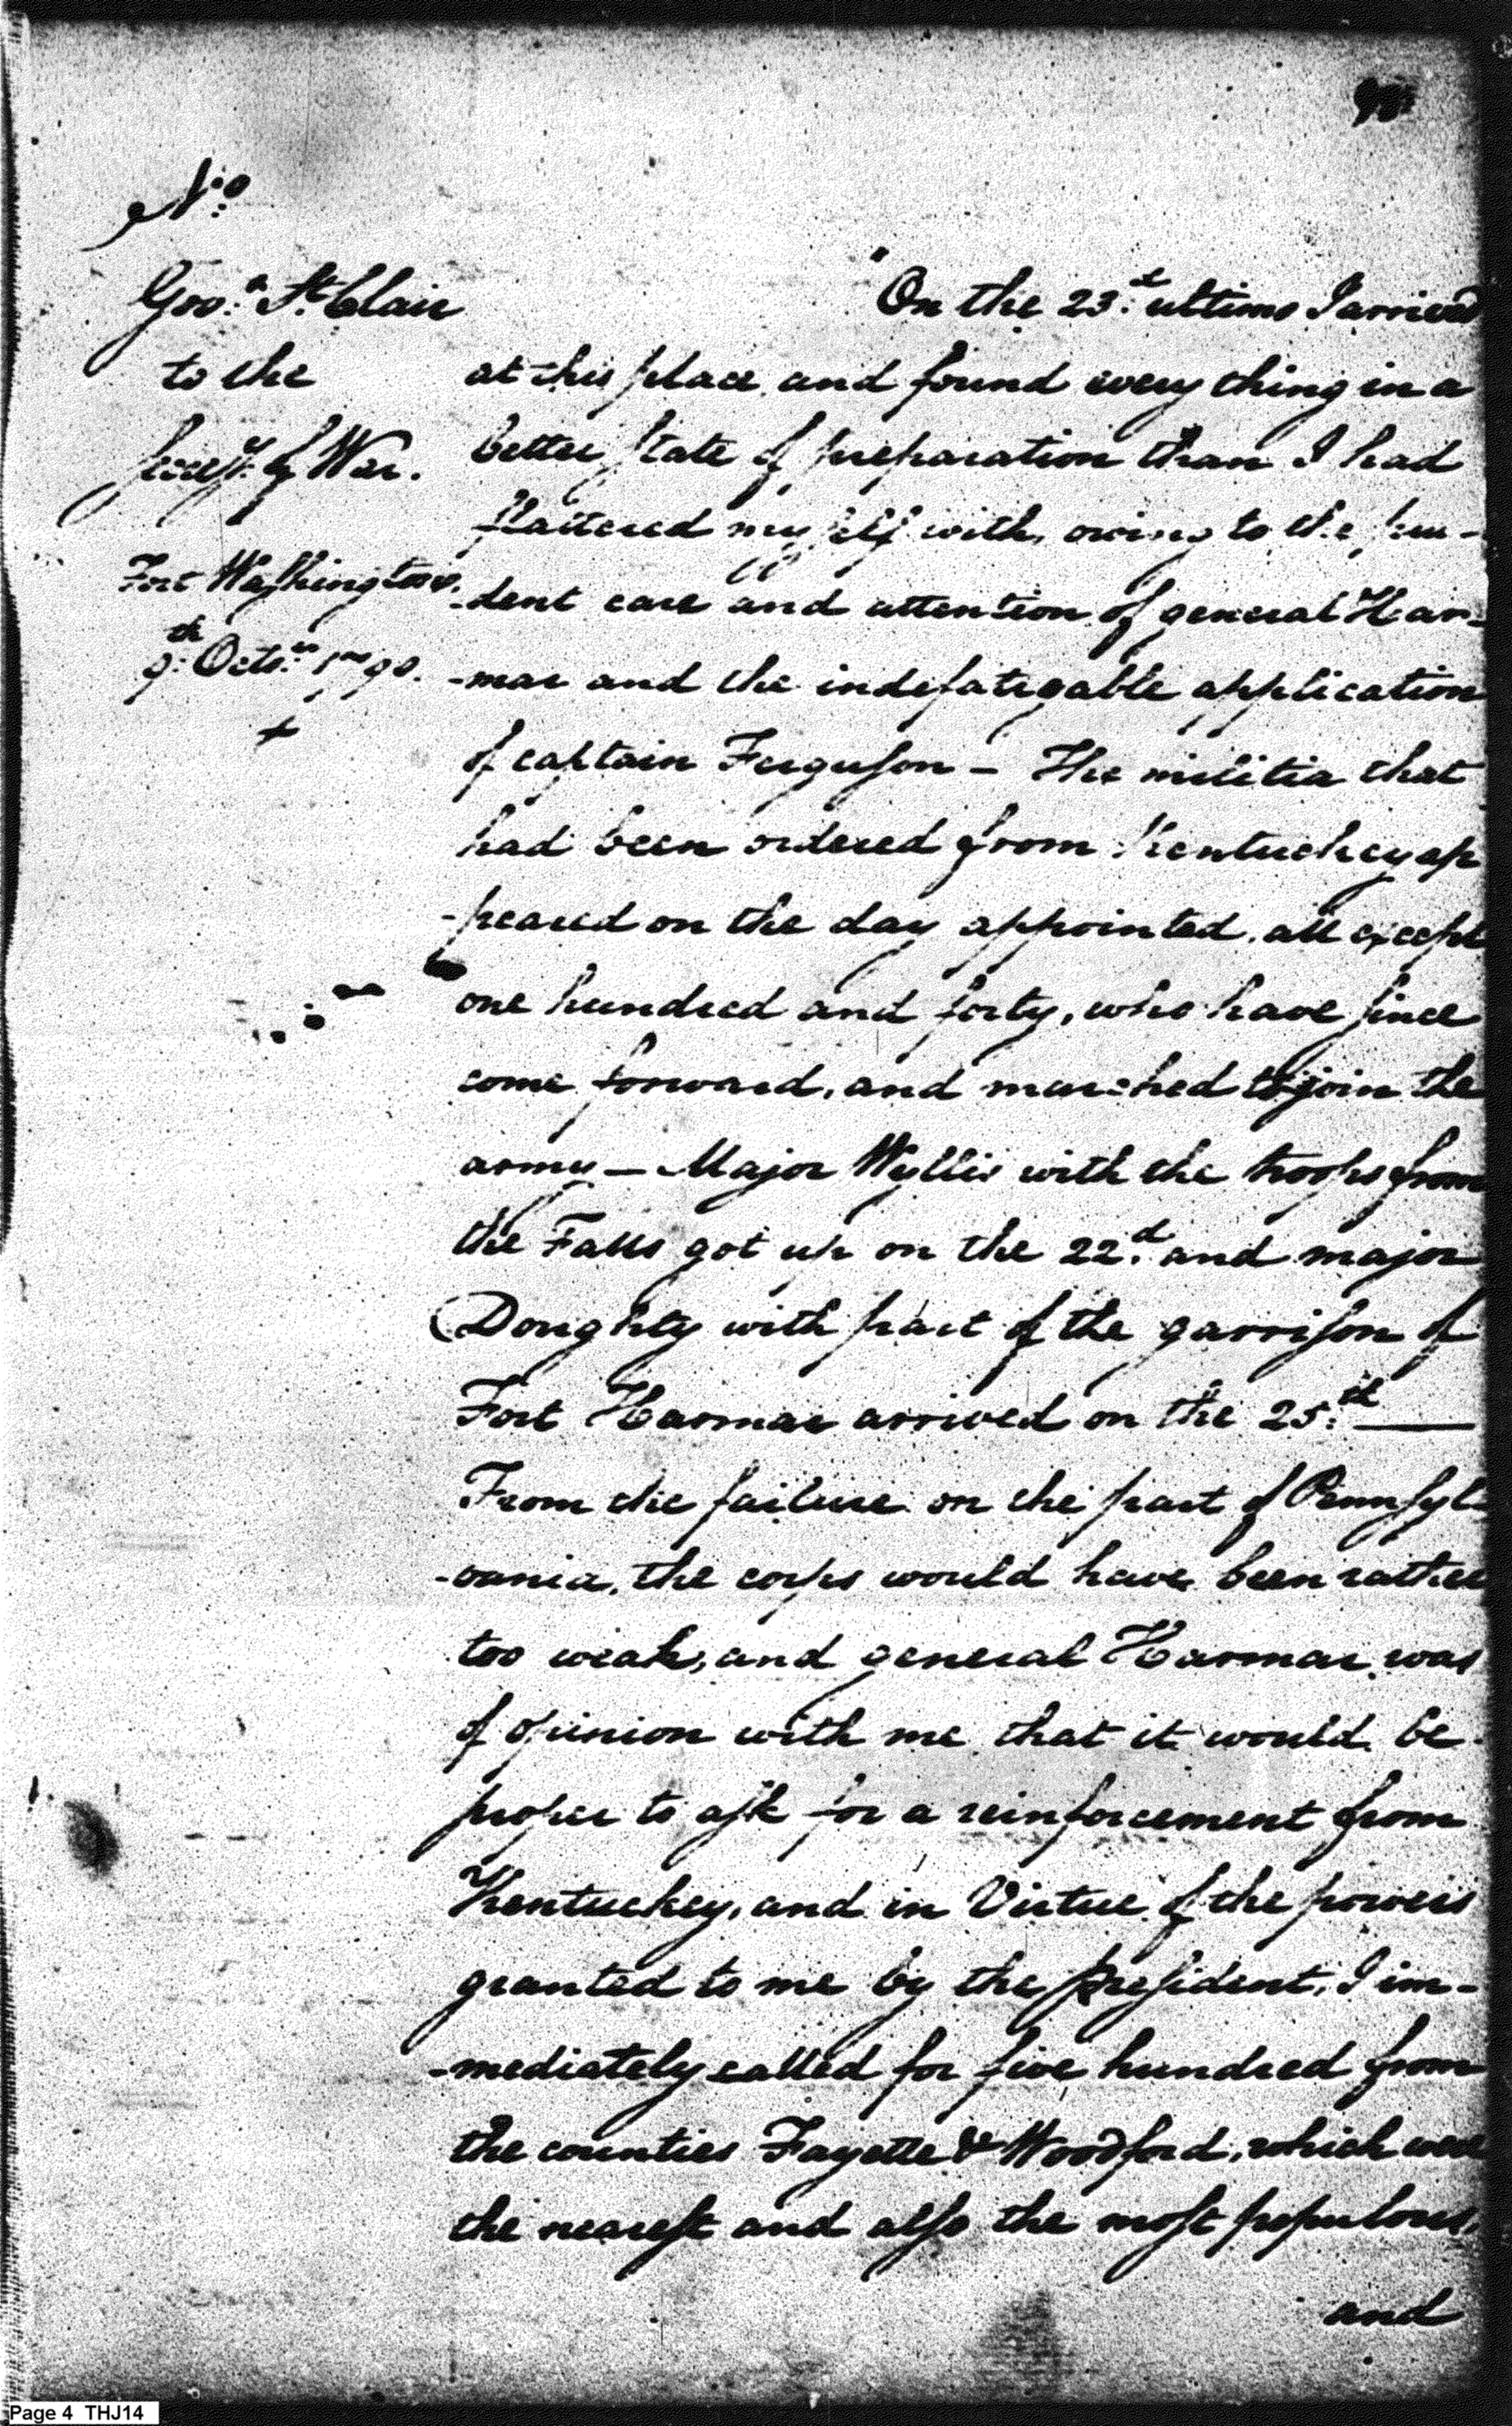 No
Govr. St. Clair
to the
Secy. of War.
Fort Washington
9th Octr. 1790.
+
"On the 23d. ultimo I arrived
at this place and found every thing in a
better state of preparation than I had
flattered myself with, owing to the pru-
-dent care and attention of general Har-
-mar and the indefatigable application
of captain Ferguson - The militia that
had been ordered from Kentuckey ap
-peared on the day appointed, all except
one hundred and forty, who have since
come forward, and marched to join the
army - Major Wyllis with the troops from
the Falls got up on the 22d. and major
Doughty with part of the garrison of
Fort Harmar arrived on the 25th.
From the failure on the part of Pennsyl-
-vania, the corps would have been rather
too weak, and general Harmar was
of opinion with me that it would be
proper to ask for a reinforcement from
Kentuckey, and in Virtue of the powers
granted to me by the president, I im-
-mediately called for five hundred from
the counties Fayette & Woodford, which were
the nearest and also the most populous,
and
Page 4 THJ14